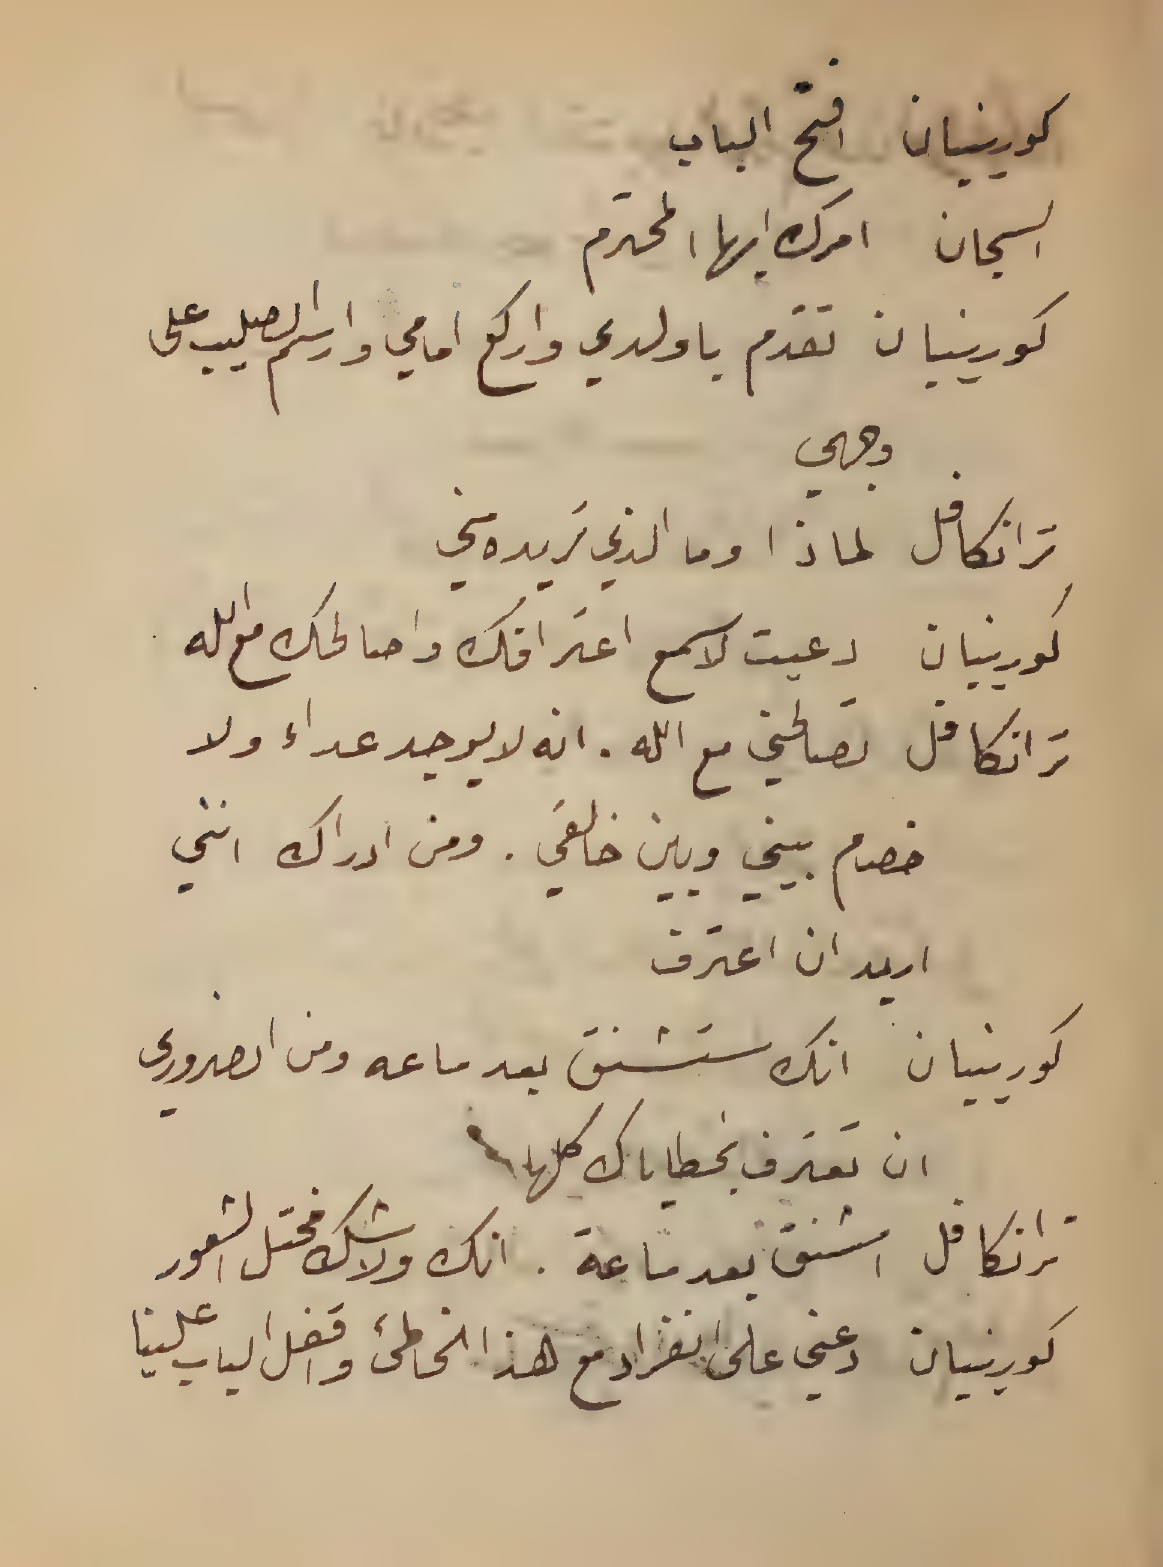 كورينيان افتح الباب
السجان امرك ايها المحترم
كورينيان تقدم ياولدي واركع امامي وارسم الصليب على
وجهي
ترانكافل لماذا وما الذي تريده مني
كورينيان دعيت لاسمع اعترافك واصالحك مع الله
ترانكافل تصالحني مع الله . انه لا يوجد عداء ولا
خصام بيني وبين خالقي . ومن ادراك انني
اريد ان اعترف
كورينيان انك ستشنق بعد ساعه ومن الضروري
ان تعترف بخطاياك كلها
ترانكافل اشنق بعد ساعة . انك ولاشك مختل الشعور
كورينيان دعني على انفراد مع هذا الخاطئ واقفل الباب علينا